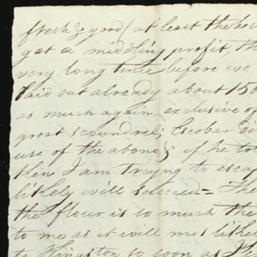 fresh & good / at least the
get a middling profit, th
very long time before we
laid out already about 150
as much again exclusive of
great scoundrel, Escobar
use of the above & if he to
then I am trying to esca
likely will succeed = The
the flour is to much the
to me as it will most likel
to Kingston so soon as I